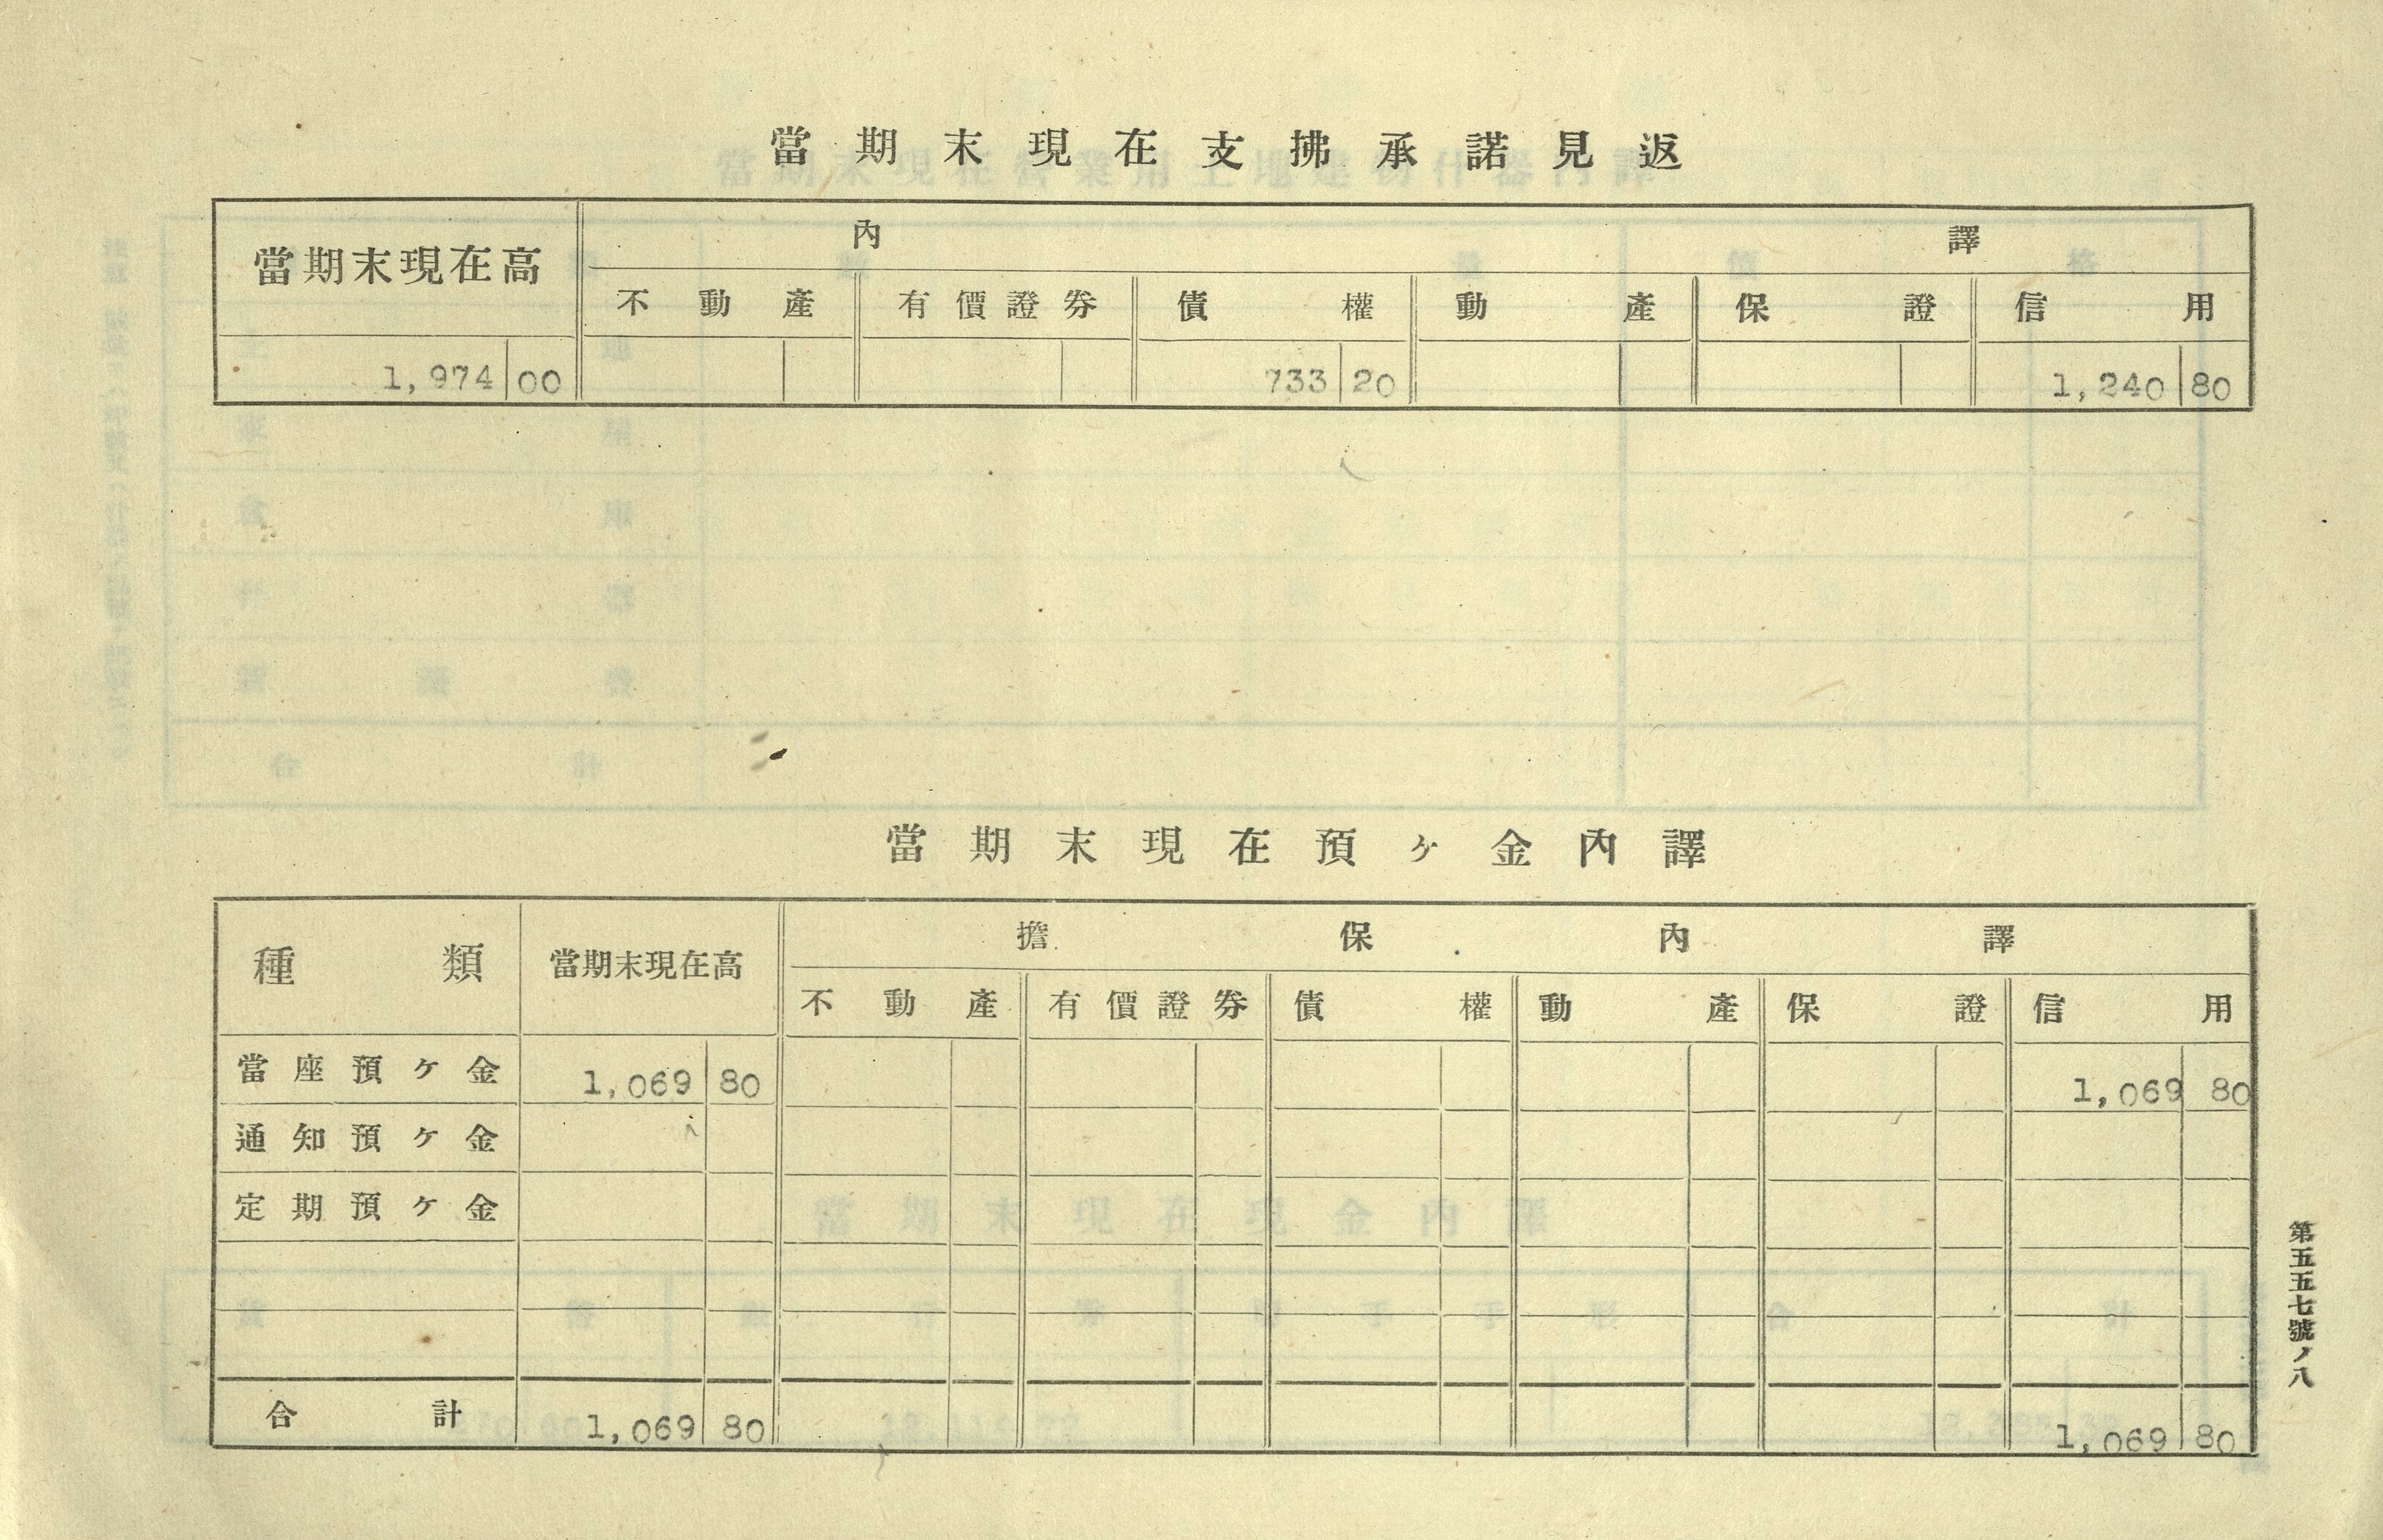 當期末現在支拂承諾見返
當期末現在高 內譯
不動產 有價證券 債權 動產 保證 信用
1,974 00 733 20 1,240 80
當期末現在預ヶ金內譯
種類 當期末現在高 擔保內譯
不動產 有價證券 債權 動產 保證 信用
當座預ケ金 1,069 80 1,069 80
通知預ケ金
定期預ケ金
合計 1,069 80 1,069 80
第五五七號ノ八